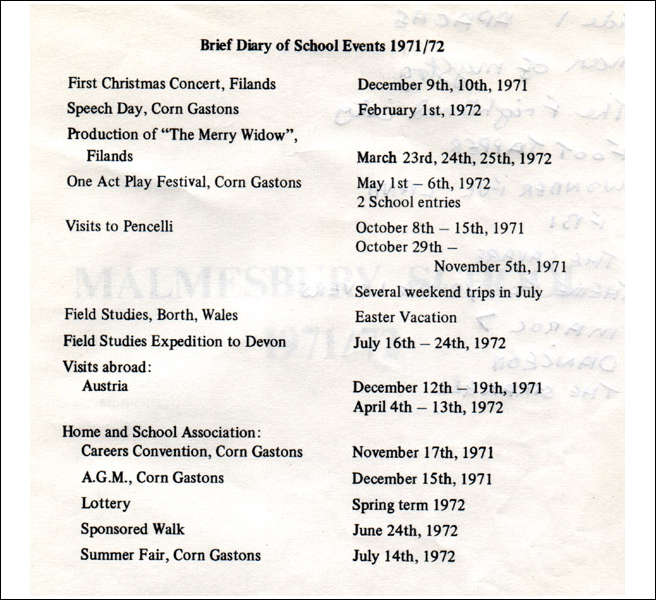 Brief Diary of School Events 1971/72
First Christmas Concert, Filands December 9th, 10th, 1971
Speech Day, Corn Gastons February 1st, 1972
Production of “The Merry Widow”,
Filands March 23rd, 24th, 25th, 1972
One Act Play Festival, Corn Gastons May 1st – 6th, 1972
2 School entries
Visits to Pencelli October 8th – 15th, 1971
October 29th –
November 5th, 1971
Several weekend trips in July
Field Studies, Borth, Wales Easter Vacation
Field Studies Expedition to Devon July 16th – 24th, 1972
Visits abroad:
Austria December 12th – 19th, 1971
April 4th – 13th, 1972
Home and School Association:
Careers Convention, Corn Gastons November 17th, 1971
A.G.M., Corn Gastons December 15th, 1971
Lottery Spring term 1972
Sponsored Walk June 24th, 1972
Summer Fair, Corn Gastons July 14th, 1972
MALMESBURY SCHOOL
1971/72